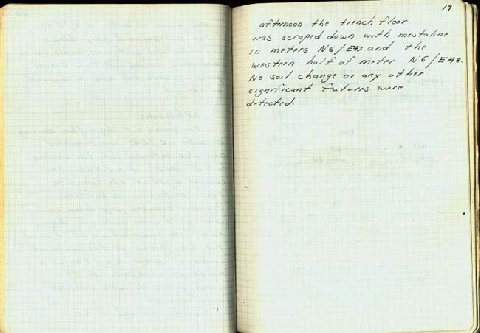 19
afternoon the trench floor
was scraped down with mestaline
in meters N6/E47 and the
western half of meter N6/E48.
No soil change or any other
significant features were
detected.